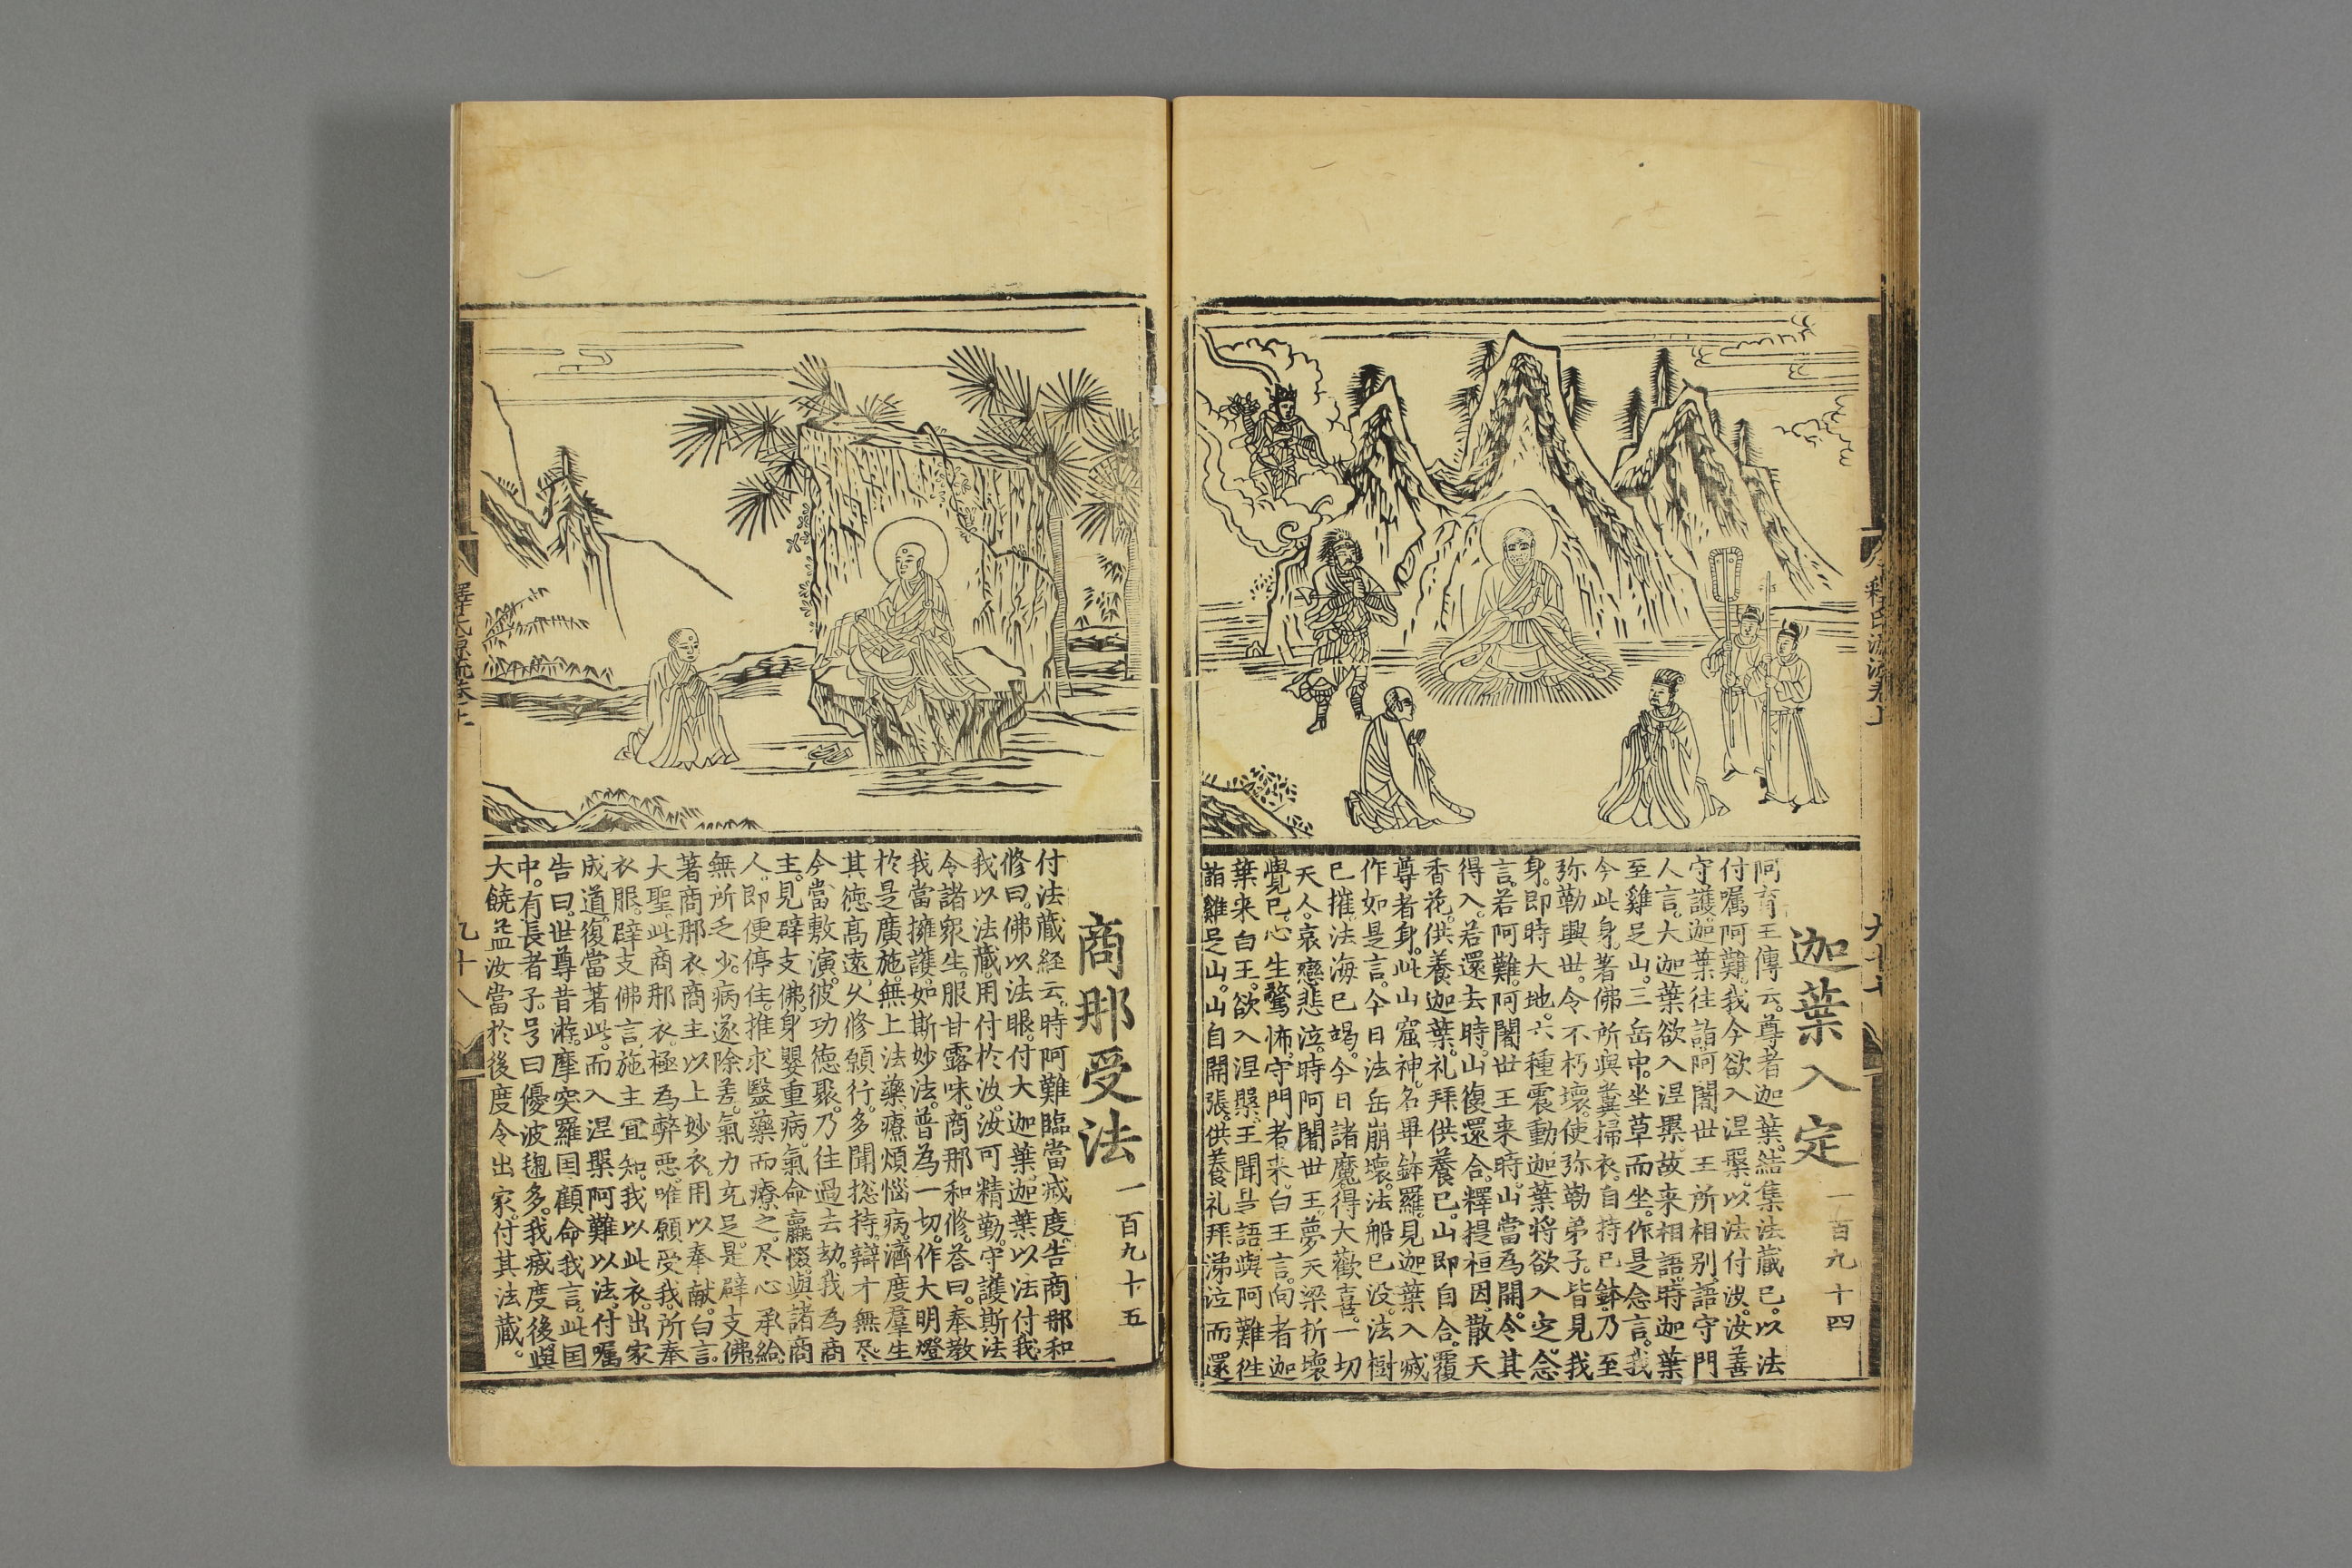 迦葉入定 一百九十四
阿育王傳云。尊者迦葉。結集法藏已。以法
付嘱阿難。我今欲入涅槃。以法付汝。汝善
守護。迦葉往詣。阿闍世王所相别。語守門
人言。大迦葉欲入涅槃。故来相語。時迦葉
至雞足山。三岳中。坐草而坐。作是念言。我
今此身。著佛所與糞掃衣。自持已鉢。乃至
弥勒興世。令不朽壞。使弥勒弟子。皆見我
身。即時大地。六種震動。迦葉将欲入定。念
言。若阿難。阿闍世王来時。山當為開。令其
得入。若還去時。山復還合。釋提桓因。散天
香花。供養迦葉。礼拜供養已。山即自合。覆
尊者身。此山窟神。名畢鉢羅。見迦葉入滅
作如是言。今日法岳崩壞。法船已没。法樹
已摧。法海已竭。今日諸魔得大歡喜。一切
天人。哀戀悲泣。時阿闍世王。夢天梁折壞
覺已。心生驚怖。守門者来。白王言。向者迦
葉来白王。欲入涅槃。王聞是語。與阿難徃
詣雞足山。山自開張。供養礼拜涕泣而還
商那受法 一百九十五
付法藏経云。時阿難臨當滅度。告商那和
修曰。佛以法眼。付大迦葉。迦葉以法付我
我以法藏。用付於汝。汝可精勤。守護斯法
令諸衆生。服甘露味。商那和修。荅曰。奉教
我當擁護。如斯妙法。普為一切。作大明燈
於是廣施。無上法藥。療煩惱病。濟度羣生
其徳高遠。乆修願行。多聞捴持。辯才無尽
今當敷演。彼功徳聚。乃往過去劫。我為商
主。見辟支佛。身嬰重病。氣命羸惙。與諸商
人。即便停住。推求醫藥而療之。尽心承給
無所乏少。病遂除差。氣力充足。是辟支佛
著商那衣。商主以上妙衣。用以奉献。白言
大聖。此商那衣。極為弊悪。唯願受我。所奉
衣服。辟支佛言。施主冝知。我以此衣。出家
成道。復當著此。而入涅槃。阿難以法。付嘱
告曰。世尊昔游。摩突羅国。顧命我言。此国
中。有長者子。号曰優波毱多。我滅度後。與
大饒益。汝當於後。度令出家。付其法藏。
釋氏源流卷上
九十八